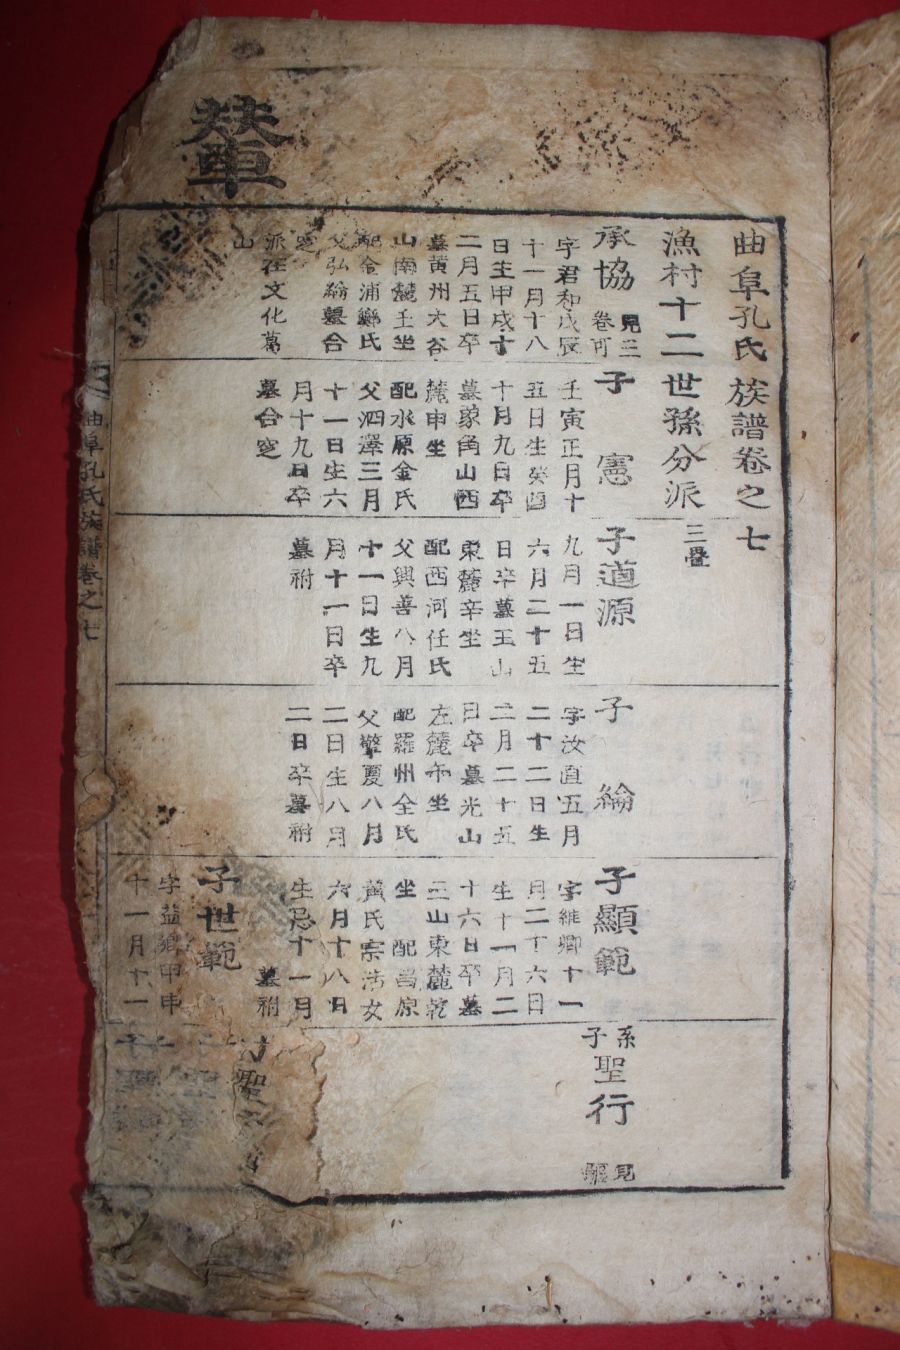 輦
曲阜孔氏族譜卷之七
漁村十二世孫分派
三疊
承協
見三
卷可
字君和戊辰
十一月十八
日生甲戌十
二月五日卒
墓黃州大谷
山南麓壬坐
配金浦鄭氏
父弘綸墓合
窆
派在文化葛
山
子憲
壬寅正月十
五日生癸酉
十月九日卒
墓蒙角山西
麓申坐
配水原金氏
父泗澤三月
十一日生六
月十九日卒
墓合窆
子道源
九月一日生
六月二十五
日卒墓玉山
東麓辛坐
配西河任氏
父興善八月
十一日生九
月十一日卒
墓祔
子綸
字汝直五月
二十二日生
二月二十五
日卒墓光山
左麓午坐
配羅州全氏
父擎夏八月
二日生八月
二日卒墓祔
子顯範
字維卿十一
月二十六日
生十一月二
十六日卒墓
三山東麓乾
坐 配昌原
黃氏宗浩女
六月十八日
生忌十一月
墓祔
子世範
字益卿甲申
十一月十一
系子聖行
見
聖
曲阜孔氏族譜卷之七